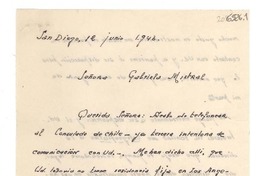 San Diego, 12 junio, 1946.
Señora Gabriela Mistral
Querida Señora: Acabo de telefonear
al Consulado de Chile - ya tercera intentona de
comunicación con Ud. - Me han dicho allí, que
Ud todavía no tiene residencia fija en Los Ange-